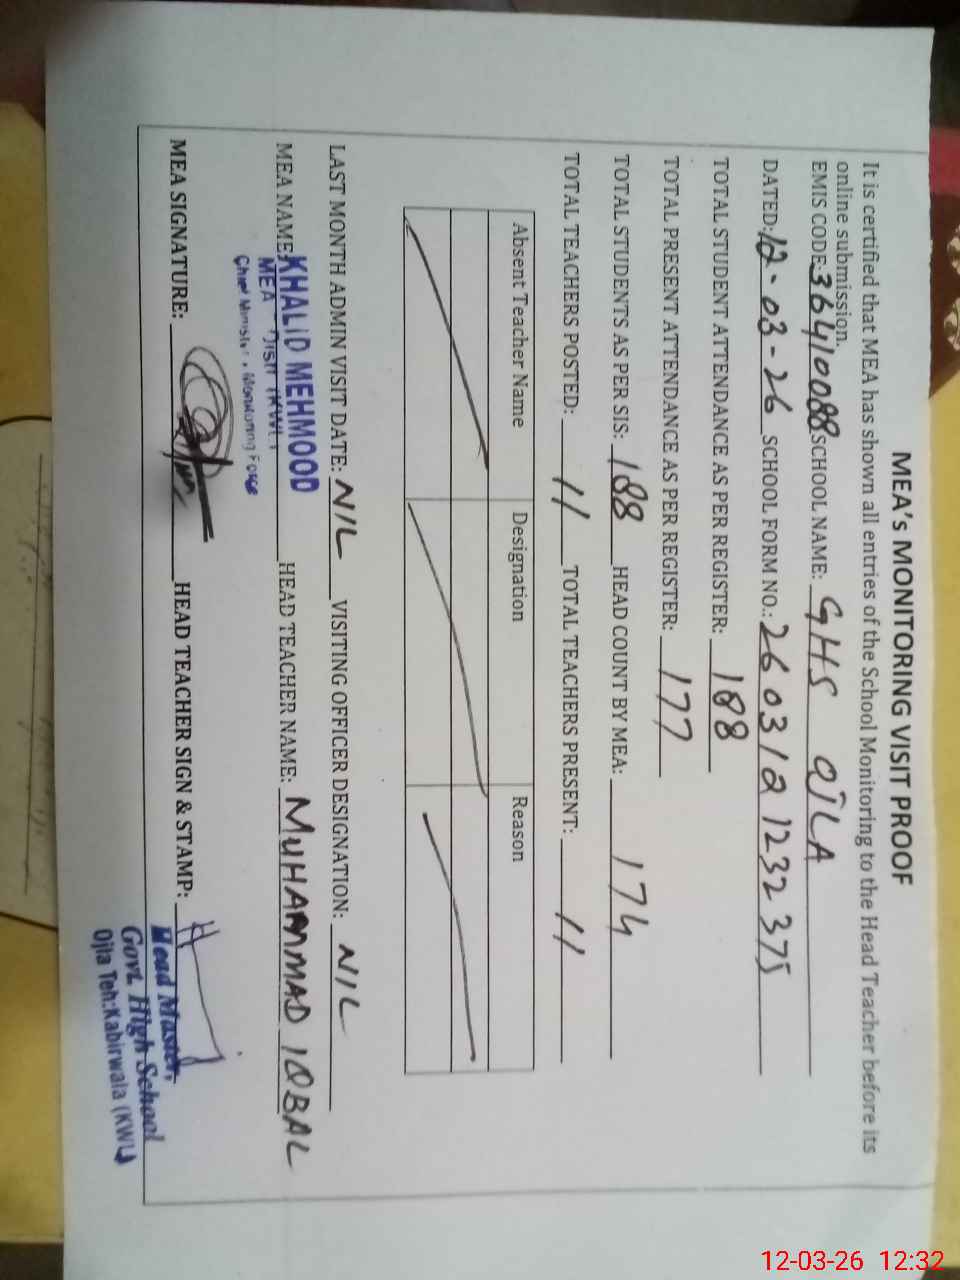 MEA's MONITORING VISIT PROOF
It is certified that MEA has shown all entries of the School Monitoring to the Head Teacher before its
online submission.
EMIS CODE: 36410088 SCHOOL NAME: GHS OJLA
DATED: 12-03-26 SCHOOL FORM NO.: 2603121232375
TOTAL STUDENT ATTENDANCE AS PER REGISTER: 188
TOTAL PRESENT ATTENDANCE AS PER REGISTER: 177
TOTAL STUDENTS AS PER SIS: 188 HEAD COUNT BY MEA: 174
TOTAL TEACHERS POSTED: 11 TOTAL TEACHERS PRESENT: 11
Absent Teacher Name Designation Reason
LAST MONTH ADMIN VISIT DATE: NIL VISITING OFFICER DESIGNATION: NIL
MEA NAME: KHALID MEHMOOD HEAD TEACHER NAME: MUHAMMAD IQBAL
MEA
Monitoring Force
MEA SIGNATURE: HEAD TEACHER SIGN & STAMP:
Head Master,
Govt. High School
Ojla Teh:Kabirwala (KWL)
12-03-26 12:32